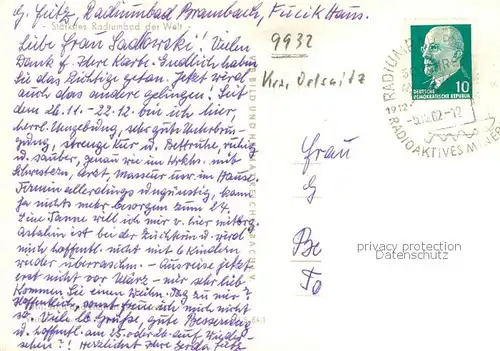 G. Fritz, Radiumbad Brambach, Fucik Haus.
Stärkstes Radiumbad der Welt
Liebe Frau Sadkowski! Vielen
Dank f. Ihre Karte. Endlich haben
Sie das Richtige getan. Jetzt wird
auch das andere gelingen! Seit
dem 26.11. - 22.12. bin ich hier,
herrl. Umgebung, sehr gute Unterbrin-
gung, strenge Kur u. Bettruhe, ruhig
u. sauber, genau wie im Krkhs. mit
Schwestern, Arzt, Masseur usw. im Hause.
Termin allerdings ungünstig, kann
ja nichts mehr besorgen zum 24.
Eine Tanne will ich mir v. hier mitbrg.
bei der u. wird
mich hoffentl. nicht mit 6 Kindern
wieder überraschen. - Ausreise jetzt
erst nicht vor März - mir sehr lieb
Kommen Sie einen Weihn. Tag zu mir?
Hoffentlich, sonst freue ich mich nicht
so. Viele lb. Grüße, gute Besserung
u. hoffentl. am 25. oder 26. auf Wieder-
sehen?! Herzlichst Ihre Gerda Fritz
9932
Krs. Oelsnitz
DEUTSCHE
DEMOKRATISCHE REPUBLIK
10
RADIUM
RADIOAKTIVES MINER
Frau
G
Be
To
privacy protection
www.ansichtskarten-center.de